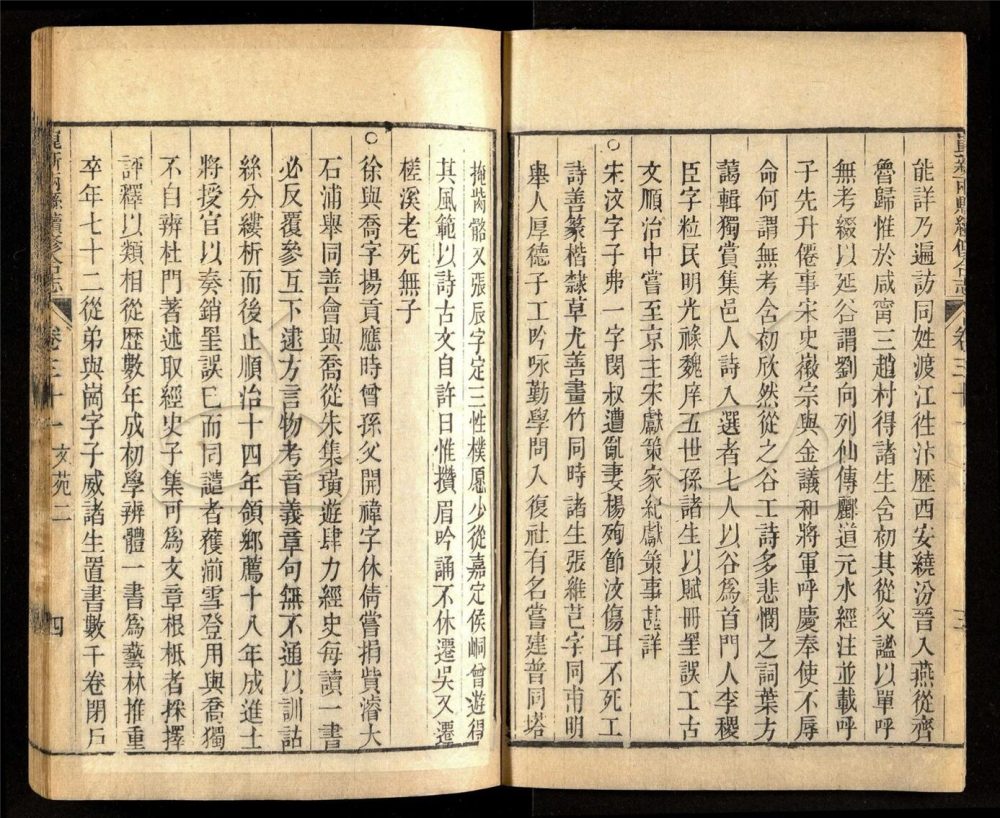 能詳乃遍訪同姓渡江徃汴歷西安繞汾晉入燕從齊
魯歸惟於咸甯三趙村得諸生含初其從父謐以單呼
無考綴以延谷謂劉向列仙傳酈道元水經注並載呼
子先升僊事宋史徽宗與金議和將軍呼慶奉使不辱
命何謂無考含初欣然從之谷工詩多悲憫之詞葉方
藹輯獨賞集邑人詩入選者七人以谷爲首門人李稷
臣字粒民明光祿魏庠五世孫諸生以賦冊罣誤工古
文順治中嘗至京主宋獻策家紀獻策事甚詳
○宋汶字子弗一字閔叔遭亂妻楊殉節汶傷耳不死工
詩善篆楷隸草尤善畫竹同時諸生張維芑字同甫明
舉人厚德子工吟咏勤學問入復社有名嘗建普同塔
掩胔骼又張辰字定三性樸愿少從嘉定侯峒曾遊得
其風範以詩古文自許日惟攢眉吟誦不休遷吳又遷
槎溪老死無子
○徐與喬字揚貢應時曾孫父開禕字休倩嘗捐貲濬大
石浦舉同善會與喬從朱集璜遊肆力經史每讀一書
必反覆參互下逮方言物考音義章句無不通以訓詁
絲分縷析而後止順治十四年領鄉薦十八年成進士
將授官以奏銷罣誤已而同譴者獲湔雪登用與喬獨
不白辨杜門著述取經史子集可爲文章根柢者採擇
評釋以類相從歷數年成初學辨體一書爲藝林推重
卒年七十二從弟與崗字子威諸生置書數千卷閉戶
崑新兩縣續修合志 卷三十一 文苑二 四